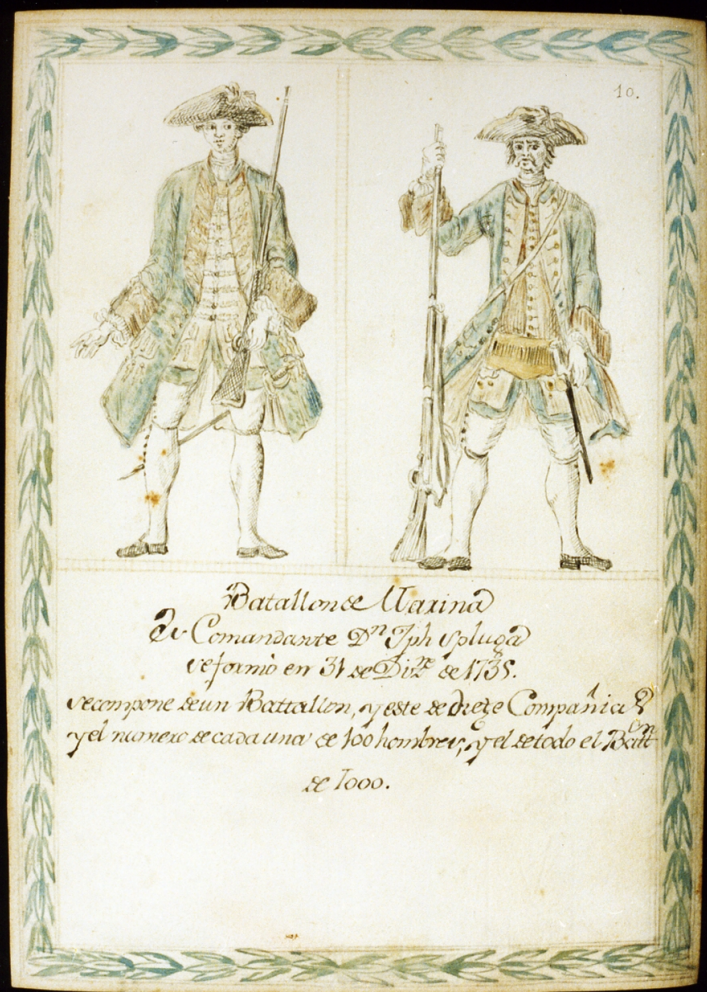 10.
Batallon de Marina
Su Comandante Dⁿ Jph Spluga
se formò en 31 de Di.ʳᵉ de 1735.
se compone de un Battallon, y este de dieze Compañias
y el numero de cada una de 100 hombres, y el de todo el Battᵒⁿ
de 1000.